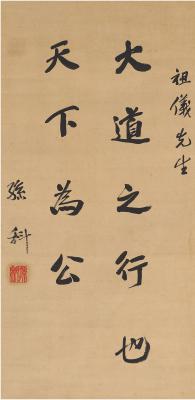 祖儀先生
大道之行也
天下為公
孫科